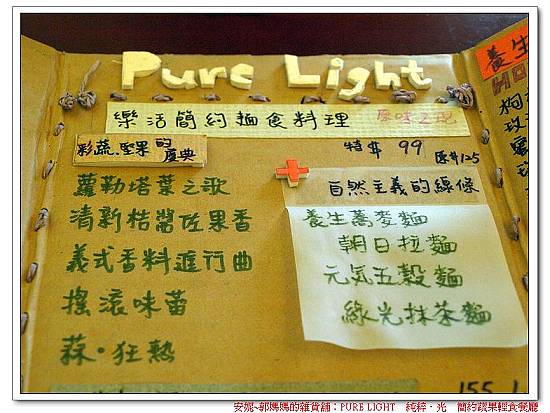 Pure Light
樂活簡約麵食料理 原味之配
彩蔬.堅果的慶典
特# 99
蘿勒塔葉之歌
清新桔醬佐果香
義式香料進行曲
搖滾味蕾
蒜·狂熱
+
自然主義的線條
養生蕎麥麵
朝日拉麵
元気五穀麵
綠光抹茶麵
養生
HO
155
安妮~郭媽媽的雜貨舖：PURE LIGHT 純粹．光 簡約蔬果輕食餐廳